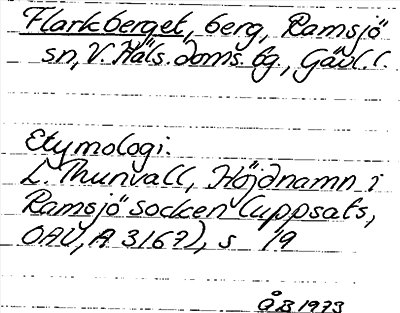 Flarkberget, berg, Ramsjö
sn, V. Häls. doms. bg, Gävl. l.
Etymologi:
L. Thunvall, Höjdnamn i
Ramsjö socken (uppsats,
OAU, A 3167), s 19
ÅB 1973